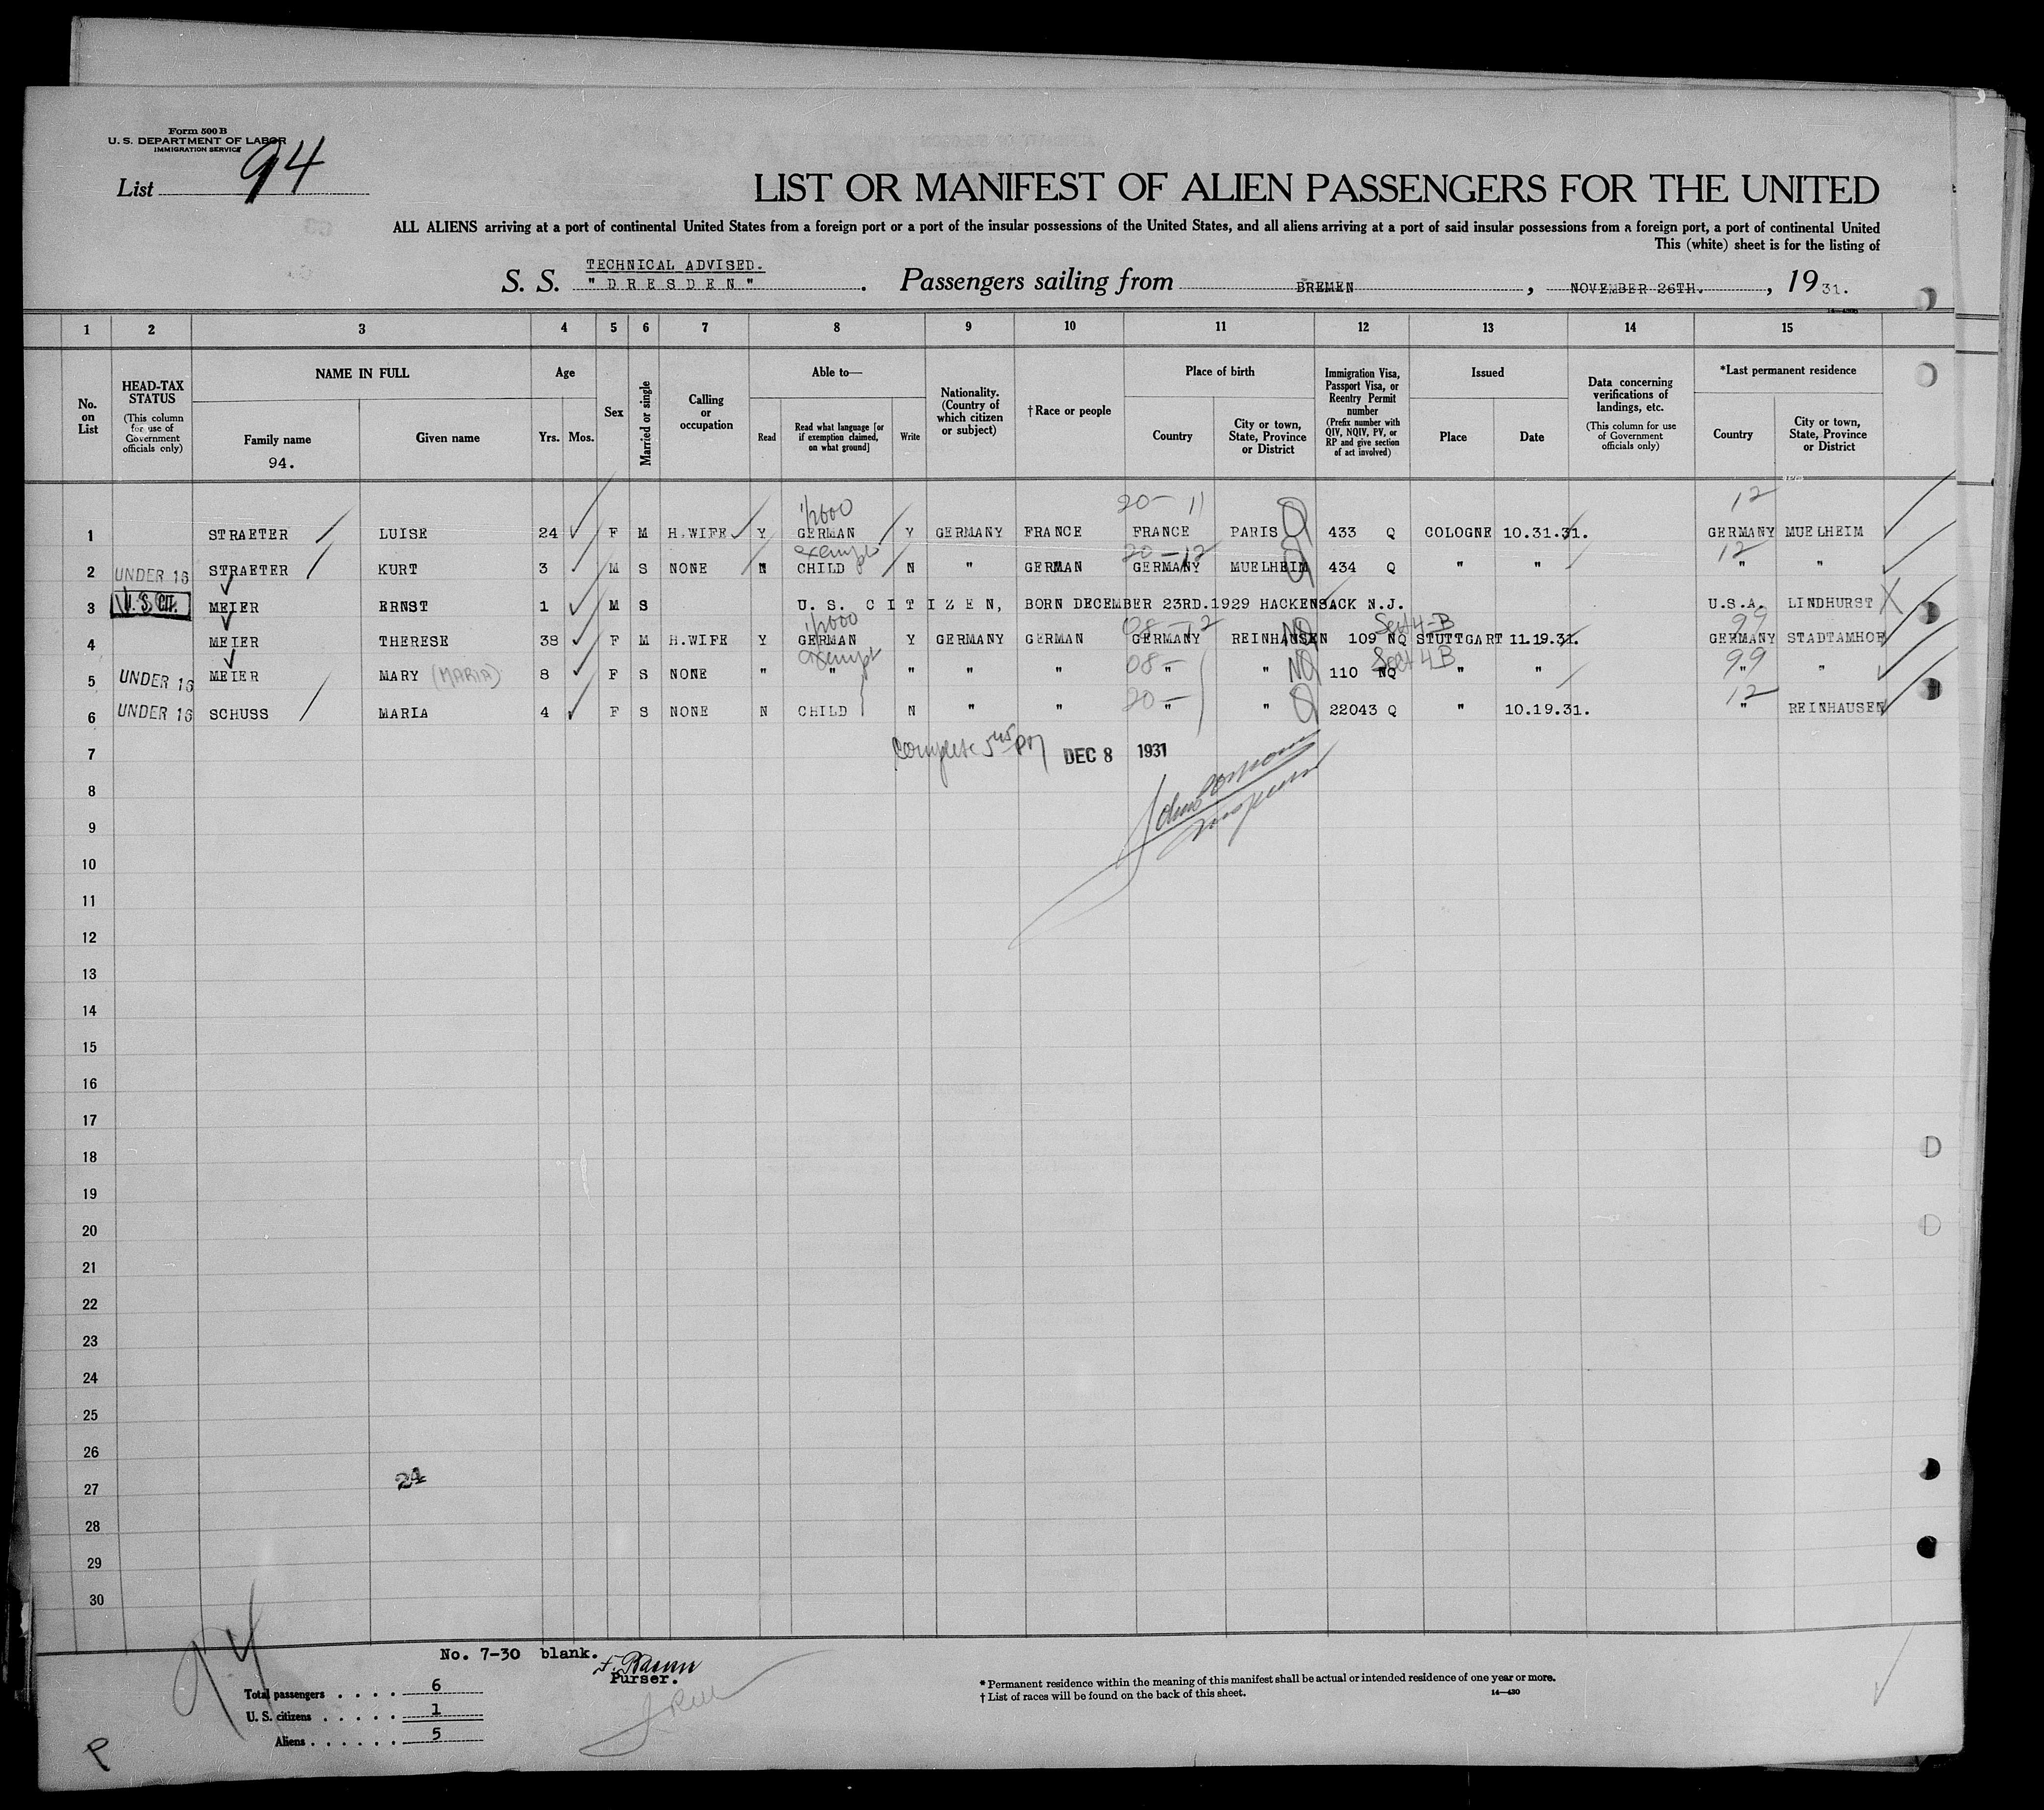 Form 500 B
U. S. DEPARTMENT OF LABOR
IMMIGRATION SERVICE
List 94
LIST OR MANIFEST OF ALIEN PASSENGERS FOR THE UNITED
ALL ALIENS arriving at a port of continental United States from a foreign port or a port of the insular possessions of the United States, and all aliens arriving at a port of said insular possessions from a foreign port, a port of continental United
This (white) sheet is for the listing of
TECHNICAL ADVISED.
S. S. "DRESDEN". Passengers sailing from BREMEN, NOVEMBER 26TH., 1931.
1 2 3 4 5 6 7 8 9 10 11 12 13 14 15
No. on List
HEAD-TAX STATUS (This column for use of Government officials only)
NAME IN FULL
Family name
94.
Given name
Age
Yrs. Mos.
Sex
Married or single
Calling or occupation
Able to—
Read
Read what language [or if exemption claimed, on what ground]
Write
Nationality. (Country of which citizen or subject)
†Race or people
Place of birth
Country
City or town, State, Province or District
Immigration Visa, Passport Visa, or Reentry Permit number (Prefix number with QIV, NQIV, PV, or RP and give section of act involved)
Issued
Place
Date
Data concerning verifications of landings, etc. (This column for use of Government officials only)
*Last permanent residence
Country
City or town, State, Province or District
20- 11 12
1 STRAETER LUISE 24 F M H.WIFE Y GERMAN Y GERMANY FRANCE FRANCE PARIS Q 433 Q COLOGNE 10.31.31. GERMANY MUELHEIM
exempt 20-12 12
2 UNDER 16 STRAETER KURT 3 M S NONE N CHILD N " GERMAN GERMANY MUELHEIM Q 434 Q " " " "
3 U.S. CIT. MEIER ERNST 1 M S U. S. CITIZEN, BORN DECEMBER 23RD.1929 HACKENSACK N.J. U.S.A. LINDHURST
08-12 Sect 4-B 99
4 MEIER THERESE 38 F M H.WIFE Y GERMAN Y GERMANY GERMAN GERMANY REINHAUSEN NQ 109 NQ STUTTGART 11.19.31. GERMANY STADTAMHOF
exempt 08- Sect 4B 99
5 UNDER 16 MEIER MARY (MARIA) 8 F S NONE " " " " " " " NQ 110 NQ " " " "
20- 12
6 UNDER 16 SCHUSS MARIA 4 F S NONE N CHILD N " " " " Q 22043 Q " 10.19.31. " REINHAUSEN
7 DEC 8 1931
8
9
10
11
12
13
14
15
16
17
18
19
20
21
22
23
24
25
26
27 24
28
29
30
94
No. 7-30 blank.
Purser.
Total passengers . . . . 6
U. S. citizens . . . . . 1
Aliens . . . . . . 5
* Permanent residence within the meaning of this manifest shall be actual or intended residence of one year or more.
† List of races will be found on the back of this sheet.
14—430
P